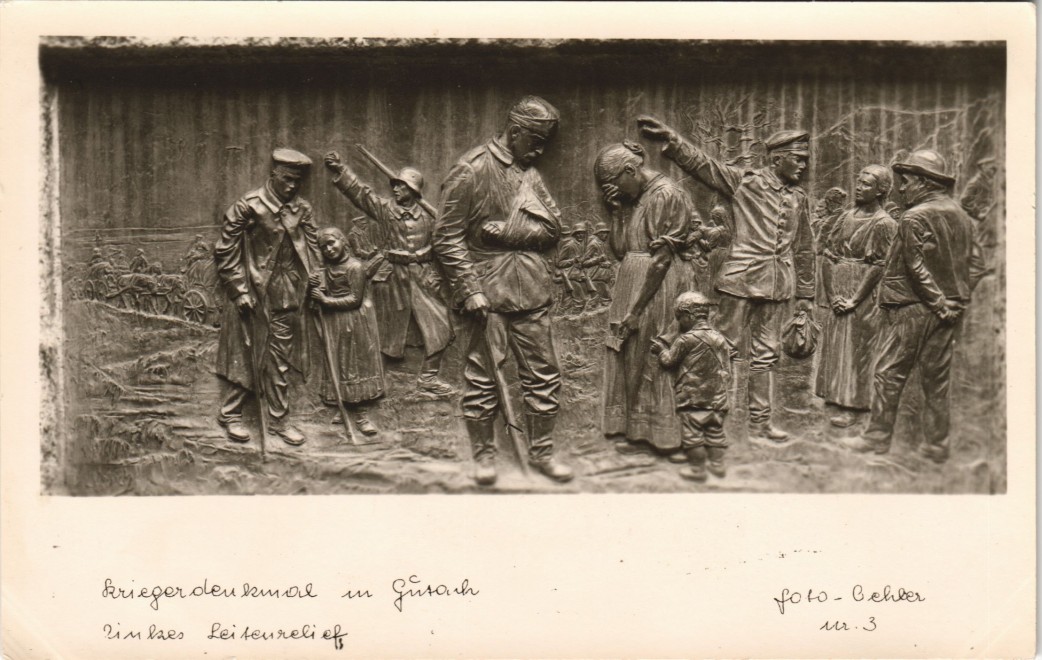 Kriegerdenkmal in Gŭtach
linkes Seitenrelief
Foto-Oehler
nr. 3